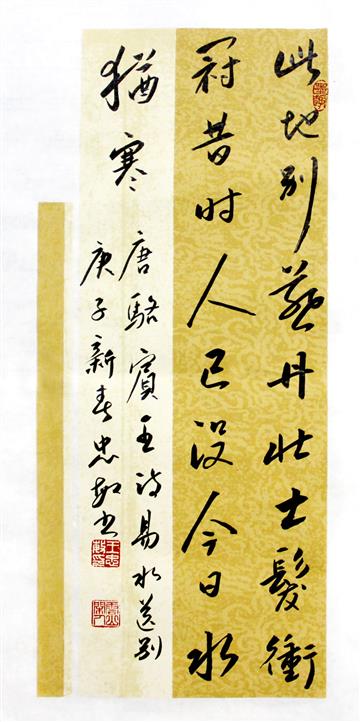 此地别燕丹壮士髮衝
冠昔时人已没今日水
猶寒
唐駱賓王诗易水送别
庚子新春忠敏书